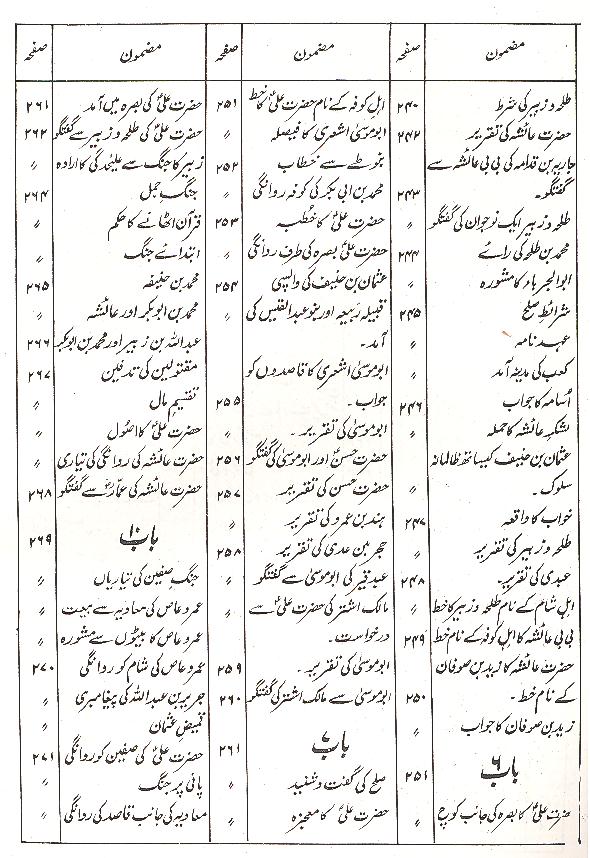 مضمون صفحہ
طلحہ و زبیر کی شرط ۲۴۰
حضرت عائشہ کی تقریر ۲۴۲
جاریہ بن قدامہ کی بی بی عائشہ سے
گفتگو۔ ۲۴۳
طلحہ و زبیر ایک نوجوان کی گفتگو ″
محمد بن طلحہ کی رائے ۲۴۴
ابوالجرباء کا مشورہ ″
شرائط صلح ۲۴۵
عہد نامہ ″
کعب کی مدینہ آمد ″
اُسامہ کا جواب ۲۴۶
لشکر عائشہ کا حملہ ″
عثمان بن حنیف کیساتھ ظالمانہ
سلوک۔ ″
خواب کا واقعہ ۲۴۷
طلحہ و زبیر کی تقریر ″
عبدی کی تقریر۔ ۲۴۸
اہل شام کے نام طلحہ و زبیر کا خط ″
بی بی عائشہ کا اہل کوفہ کے نام خط ۲۴۹
حضرت عائشہ کا زید بن صوفان
کے نام خط۔ ۲۵۰
زید بن صوفان کا جواب ″
باب ۶ ۲۵۱
حضرت علیؑ کا بصرہ کی جانب کوچ ″
مضمون صفحہ
اہل کوفہ کے نام حضرت علیؑ کا خط ۲۵۱
ابوموسیٰ اشعری کا فیصلہ ″
بنوطے سے خطاب ۲۵۲
محمد بن ابی بکر کی کوفہ روانگی ″
حضرت علیؑ کا خطبہ ۲۵۳
حضرت علیؑ بصرہ کی طرف روانگی ″
عثمان بن حنیف کی واپسی ۲۵۴
قبیلہ ربیعہ اور بنو عبدالقیس کی ″
آمد۔
ابوموسیٰ اشعری کا قاصدوں کو
جواب۔ ۲۵۵
ابوموسیٰ کی تقریر۔ ″
حضرت حسنؑ اور ابوموسیٰ کی گفتگو ۲۵۶
حضرت حسن کی تقریر ۲۵۷
ہند بن عمرو کی تقریر ″
حجر بن عدی کی تقریر ۲۵۸
عبد خیر کی ابوموسیٰ سے گفتگو ″
مالک اشتر کی حضرت علیؑ سے ″
درخواست۔
ابوموسیٰ کی تقریر۔ ۲۵۹
ابوموسیٰ سے مالک اشتر کی گفتگو ۲۶۰
باب ۷ ۲۶۱
صلح کی گفت و شنید ″
حضرت علیؑ کا معجزہ ″
مضمون صفحہ
حضرت علیؑ کی بصرہ میں آمد ۲۶۱
حضرت علیؑ کی طلحہ و زبیر سے گفتگو ۲۶۲
زبیر کا جنگ سے علیحدگی کا ارادہ ″
جنگ جمل ۲۶۴
قرآن اٹھانے کا حکم ″
ابتدائے جنگ ″
محمد بن حنیفہ ۲۶۵
محمد بن ابوبکر اور عائشہ ″
عبداللہ بن زبیر اور محمد بن ابوبکر ۲۶۶
مقتولین کی تدفین ۲۶۷
تقسیم مال ″
حضرت علیؑ کا اصول ″
حضرت عائشہ کی روانگی کی تیاری ″
حضرت عائشہ کی عمارؓ سے گفتگو ۲۶۸
باب ۱۰ ۲۶۹
جنگ صفین کی تیاریاں ″
عمرو عاص کی معاویہ سے بیعت ″
عمرو عاص کا بیٹوں سے مشورہ ″
عمرو عاص کی شام کو روانگی ۲۷۰
جریر بن عبداللہ کی پیغامبری ″
قمیص عثمان ″
حضرت علیؑ کی صفین کو روانگی ۲۷۱
پانی پر جنگ ″
معاویہ کی جانب قاصد کی روانگی ″